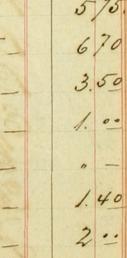 5 75.
— 6 70
— 3.50
— 1.00
— " —
— 1.40
— 2 00